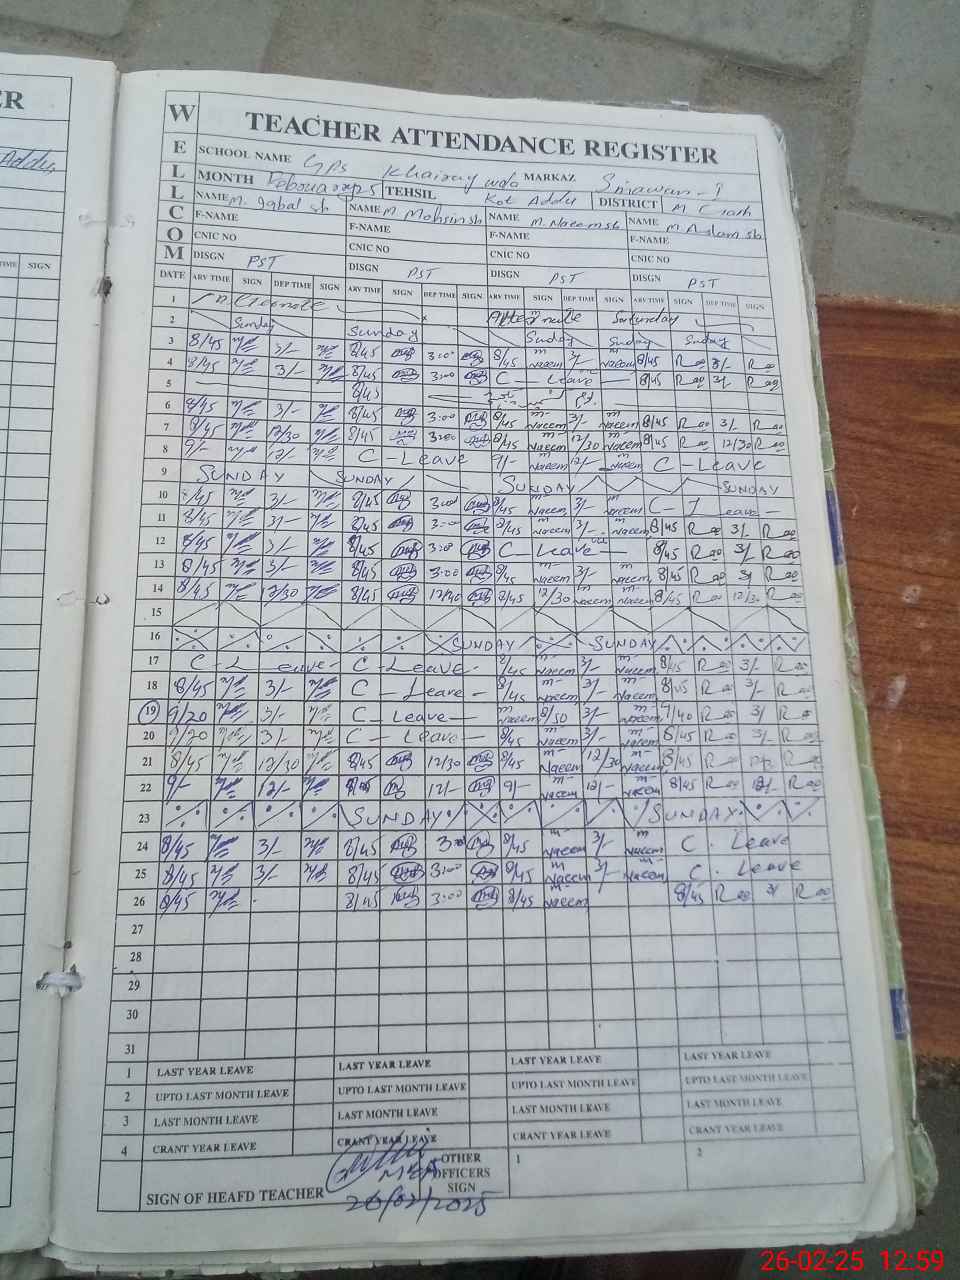 ER
Addu
TIME SIGN
WELLCOM
TEACHER ATTENDANCE REGISTER
SCHOOL NAME GPS Khairay wala MARKAZ Sinawan-I
MONTH TEHSIL Kot Addu DISTRICT M Garh
NAME M. Iqbal sb NAME M Mohsin sb NAME M. Naeem sb NAME M Aslam sb
F-NAME F-NAME F-NAME F-NAME
CNIC NO CNIC NO CNIC NO CNIC NO
DISGN PST DISGN PST DISGN PST DISGN PST
DATE ARV TIME SIGN DEP TIME SIGN ARV TIME SIGN DEP TIME SIGN ARV TIME SIGN DEP TIME SIGN ARV TIME SIGN DEP TIME SIGN
1 Alternate Saturday
2 Sunday Sunday Sunday Sunday Sunday
3 8/45 3/- 8/45 3:00 8/45 m Naeem 3/- m Naeem 8/45 3/-
4 8/45 3/- 8/45 3:00 C - Leave 8/45 3/-
5 8/45
6 8/45 3/- 8/45 3:00 8/45 m Naeem 3/- m Naeem 8/45 3/-
7 8/45 12/30 8/45 3:00 8/45 m Naeem 12/30 m Naeem 8/45 12/30
8 9/- 12/- C - Leave 9/- m Naeem 12/- m Naeem C - Leave
9 SUNDAY SUNDAY SUNDAY SUNDAY
10 8/45 3/- 8/45 3:00 8/45 m Naeem 3/- m Naeem C - Leave -
11 8/45 3/- 8/45 3:00 8/45 m Naeem 3/- m Naeem 8/45 3/-
12 8/45 3/- 8/45 3:00 C - Leave - 8/45 3/-
13 8/45 3/- 8/45 3:00 8/45 m Naeem 3/- m Naeem 8/45 3/
14 8/45 12/30 8/45 8/45 12/30 m Naeem m Naeem 8/45 12/30
15
16 SUNDAY SUNDAY
17 C - Leave - C - Leave - 8/45 m- Naeem 3/- m- Naeem 8/45 3/-
18 8/45 3/- C - Leave - 8/45 m- Naeem 3/- m- Naeem 8/45 3/-
19 9/20 3/- C - Leave - m Naeem 3/- m- Naeem 7/40 3/
20 9/20 3/- C - Leave - 8/45 m Naeem 3/- m Naeem 8/45 3/-
21 8/45 12/30 8/45 12/30 8/45 m- Naeem 12/30 m- Naeem 8/45
22 9/- 12/- 12/- 9/- m- Naeem 12/- m- Naeem 8/45 12/-
23 SUNDAY SUNDAY
24 8/45 3/- 8/45 3:00 8/45 m- Naeem 3/- m Naeem C. Leave
25 8/45 3/- 8/45 3:00 8/45 m Naeem 3/- m- Naeem C. Leave
26 8/45 8/45 3:00 8/45 m- Naeem 8/45 3/
27
28
29
30
31
1 LAST YEAR LEAVE LAST YEAR LEAVE LAST YEAR LEAVE LAST YEAR LEAVE
2 UPTO LAST MONTH LEAVE UPTO LAST MONTH LEAVE UPTO LAST MONTH LEAVE UPTO LAST MONTH LEAVE
3 LAST MONTH LEAVE LAST MONTH LEAVE LAST MONTH LEAVE LAST MONTH LEAVE
4 CRANT YEAR LEAVE CRANT YEAR LEAVE CRANT YEAR LEAVE CRANT YEAR LEAVE
SIGN OF HEAFD TEACHER MEA OTHER OFFICERS SIGN 1 2
26/02/2025
26-02-25 12:59